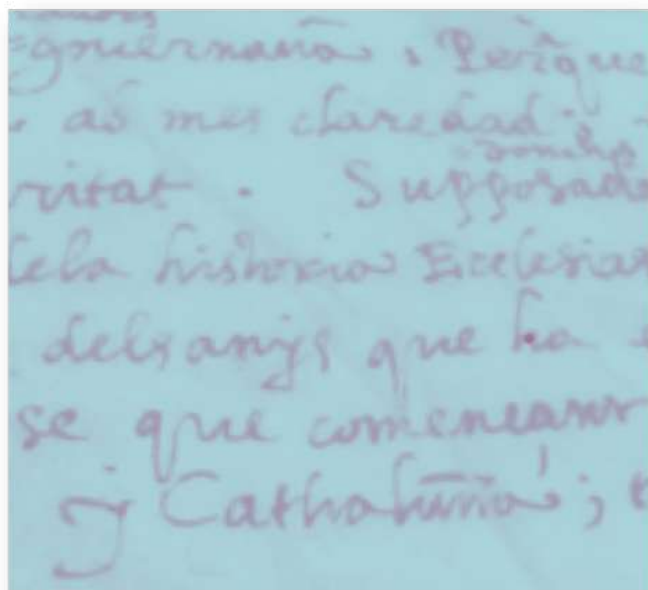 =gouernaua. Perque
ab mes claredad.
ritat. Supposada
historia Ecclesias
dels anys que ha
se que comencant
y Cathaluña;